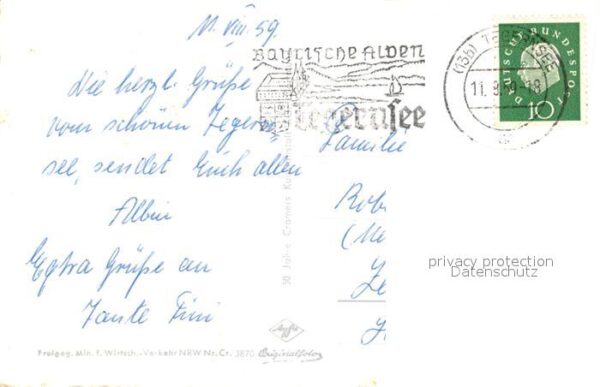 11. VIII. 59.
Die herzl. Grüße
vom schönen Tegern
see, sendet Euch allen
Albin
Extra Grüße an
Tante Fini
Bayrische Alpen
Tegernsee
(13b) TEGERNSEE
11. 8. 59 - 18
DEUTSCHE BUNDESPOST
10
Familie
Rob
privacy protection
Datenschutz
30 Jahre Cramers Kunstanstalt
Agfa
Freigeg. Min. f. Wirtsch.-Verkehr NRW Nr. Cr. 3870 Originalfoto